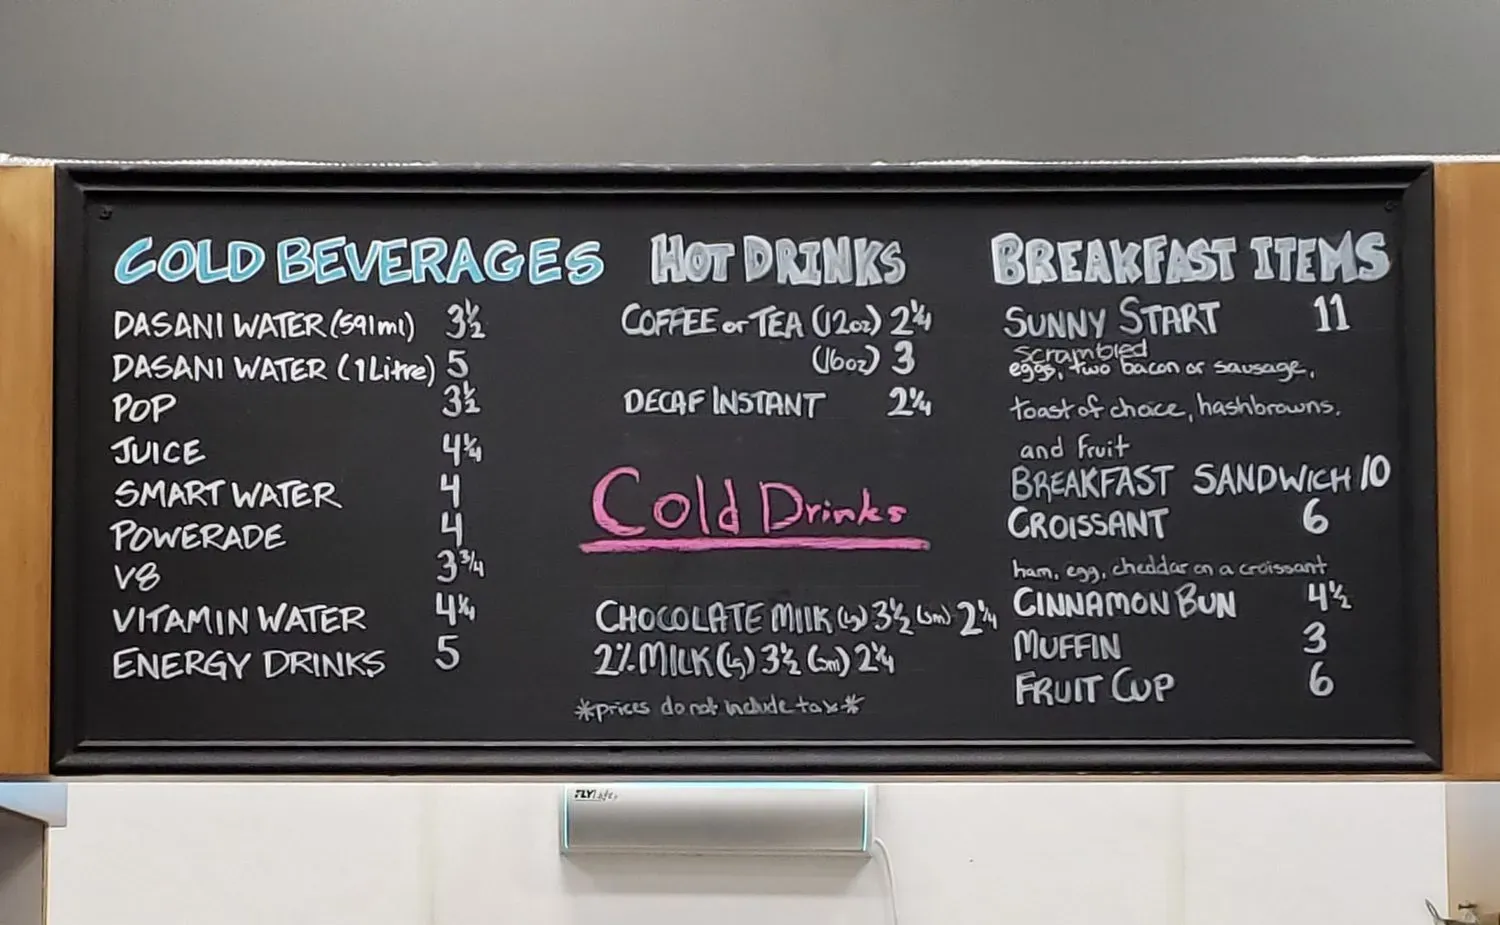 COLD BEVERAGES
DASANI WATER (591ml) 3½
DASANI WATER (1 Litre) 5
POP 3½
JUICE 4¼
SMART WATER 4
POWERADE 4
V8 3¾
VITAMIN WATER 4¼
ENERGY DRINKS 5
HOT DRINKS
COFFEE or TEA (12oz) 2¼
(16oz) 3
DECAF INSTANT 2¼
Cold Drinks
CHOCOLATE MILK (lg) 3½ (sm) 2¼
2% MILK (lg) 3½ (sm) 2¼
*prices do not include tax*
BREAKFAST ITEMS
SUNNY START 11
scrambled
eggs, two bacon or sausage,
toast of choice, hashbrowns,
and fruit
BREAKFAST SANDWICH 10
CROISSANT 6
ham, egg, cheddar on a croissant
CINNAMON BUN 4½
MUFFIN 3
FRUIT CUP 6
FLYLife